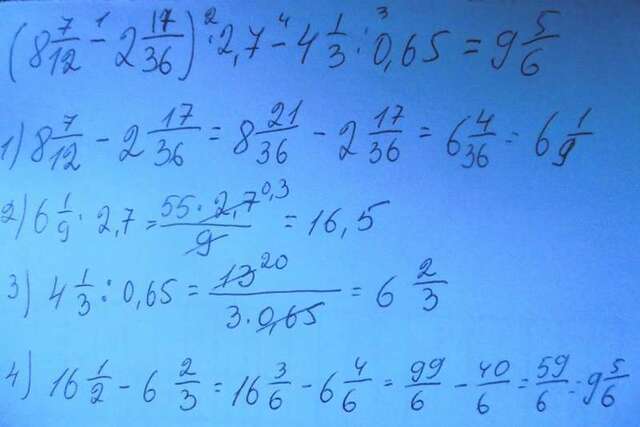 (8 7/12 - 2 17/36) · 2,7 - 4 1/3 : 0,65 = 9 5/6
1) 8 7/12 - 2 17/36 = 8 21/36 - 2 17/36 = 6 4/36 = 6 1/9
2) 6 1/9 · 2,7 = 55 · 2,7 0,3 / 9 = 16,5
3) 4 1/3 : 0,65 = 13 20 / 3 · 0,65 = 6 2/3
4) 16 1/2 - 6 2/3 = 16 3/6 - 6 4/6 = 99/6 - 40/6 = 59/6 = 9 5/6